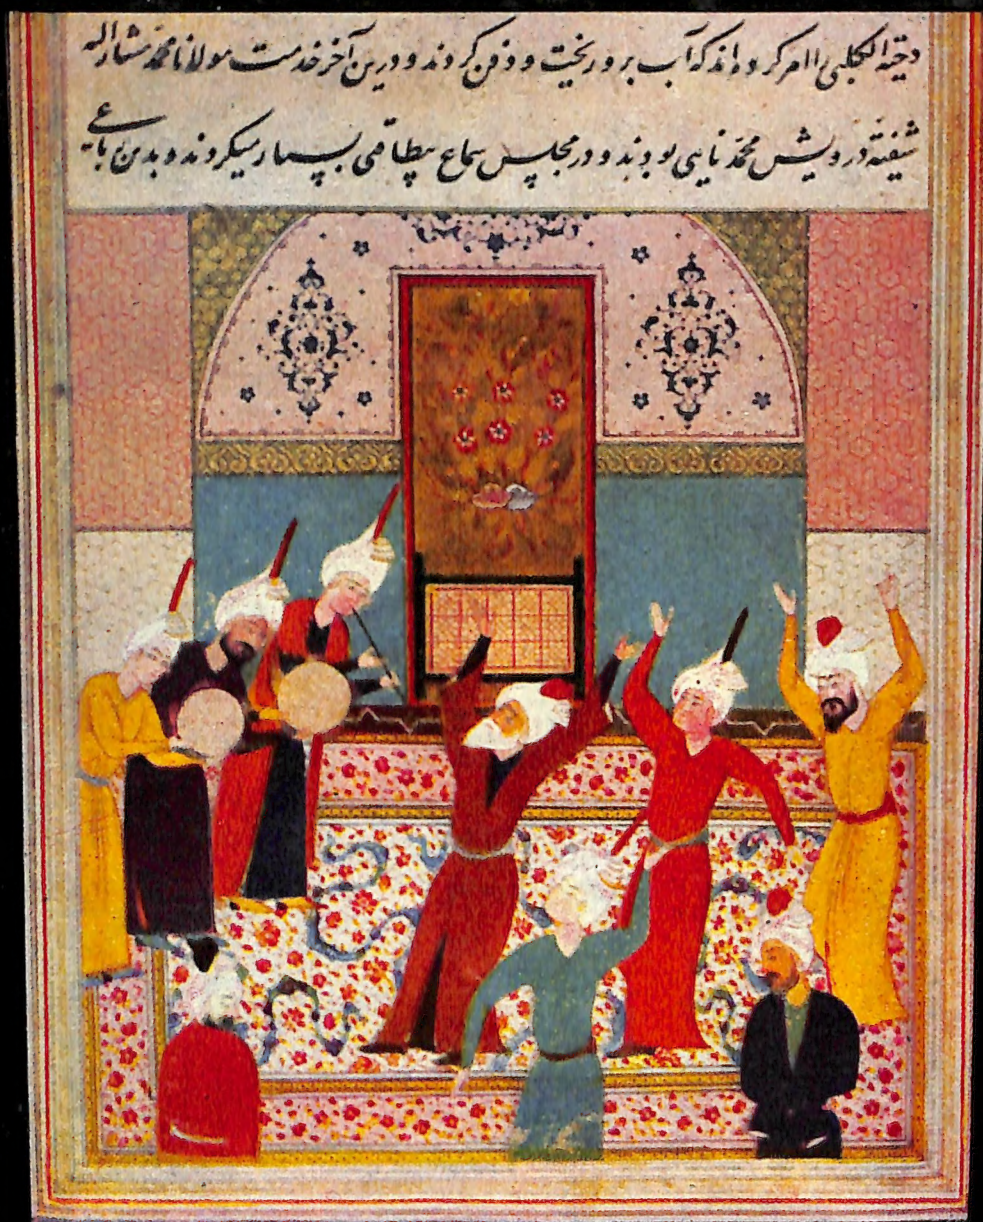 دخیة الکلبی را امر کرده اند که آب برو ریخت و دفن کردند و درین آخر خدمت مولانا محمد مشار الیه
شیفته درویش محمد نایی بودند و در مجلس سماع بیطاقتی بسیار میکردند و بدین